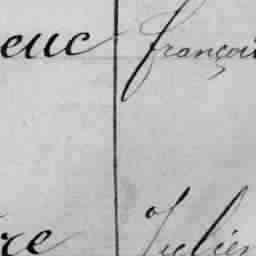 euc françoi
re Julien